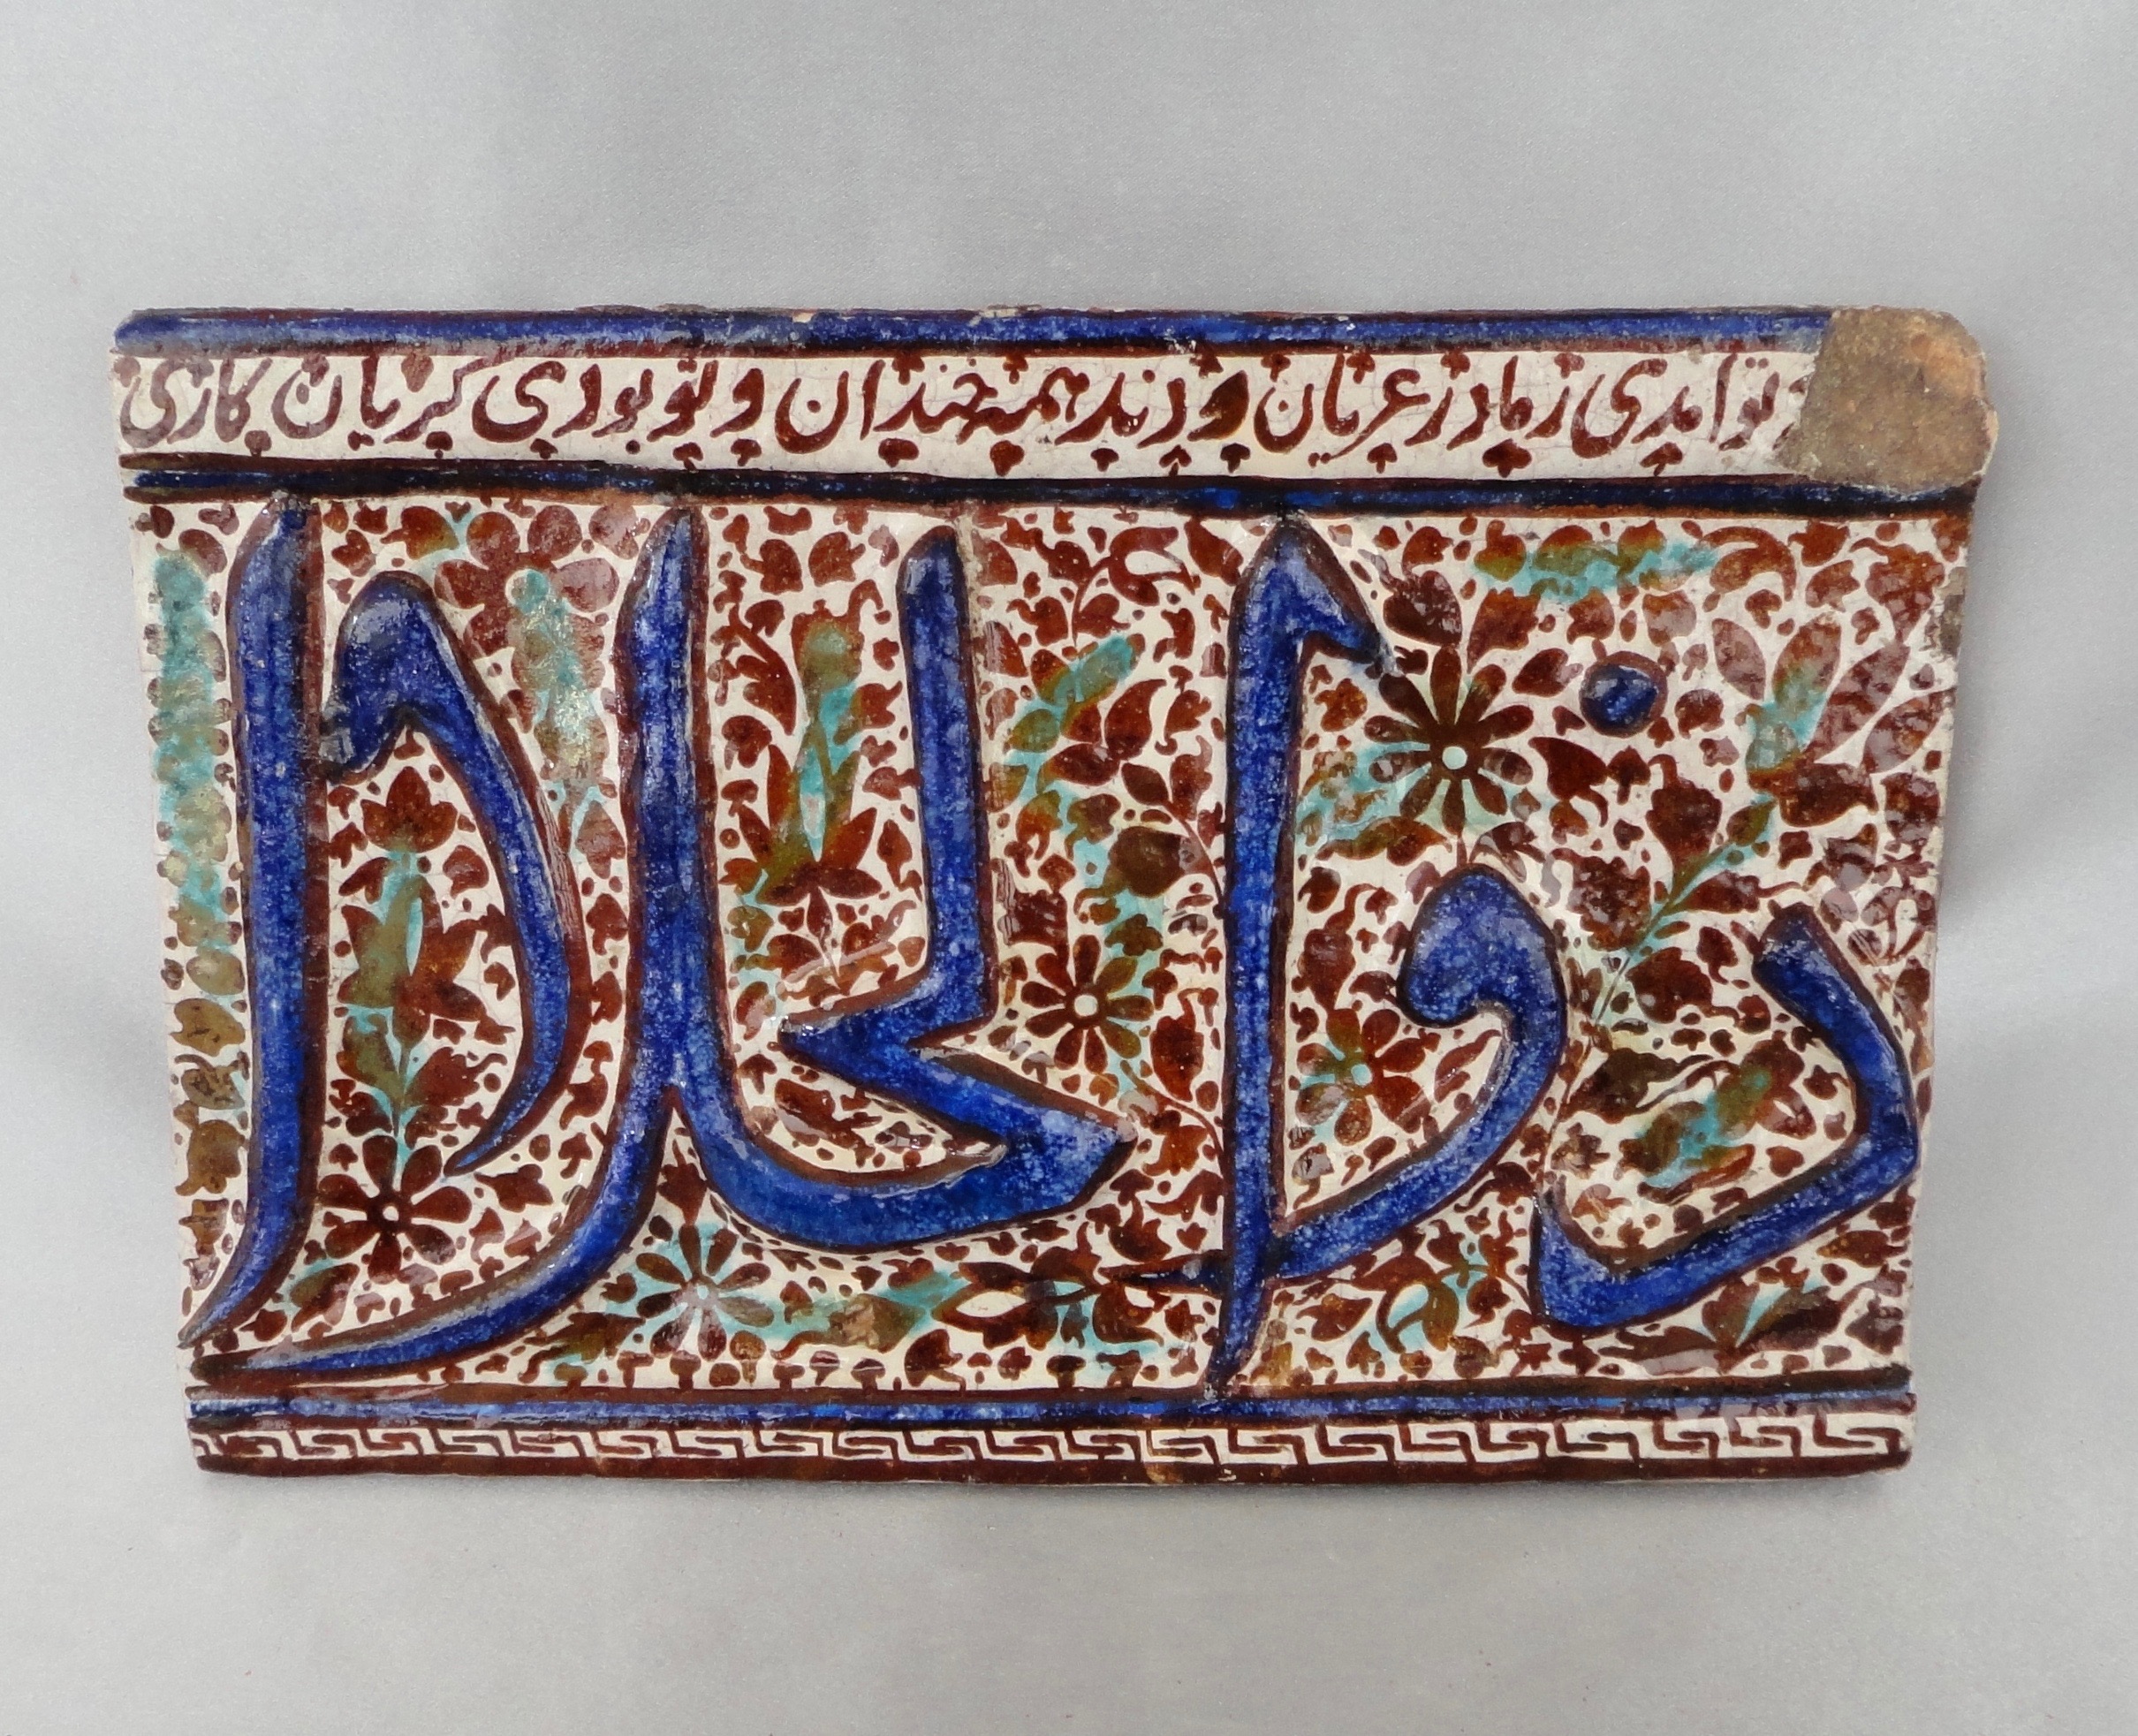 تو امدی ز مادر عریان و دند همه خندان و تو بودی گریان کاری
ذوالجلال ا